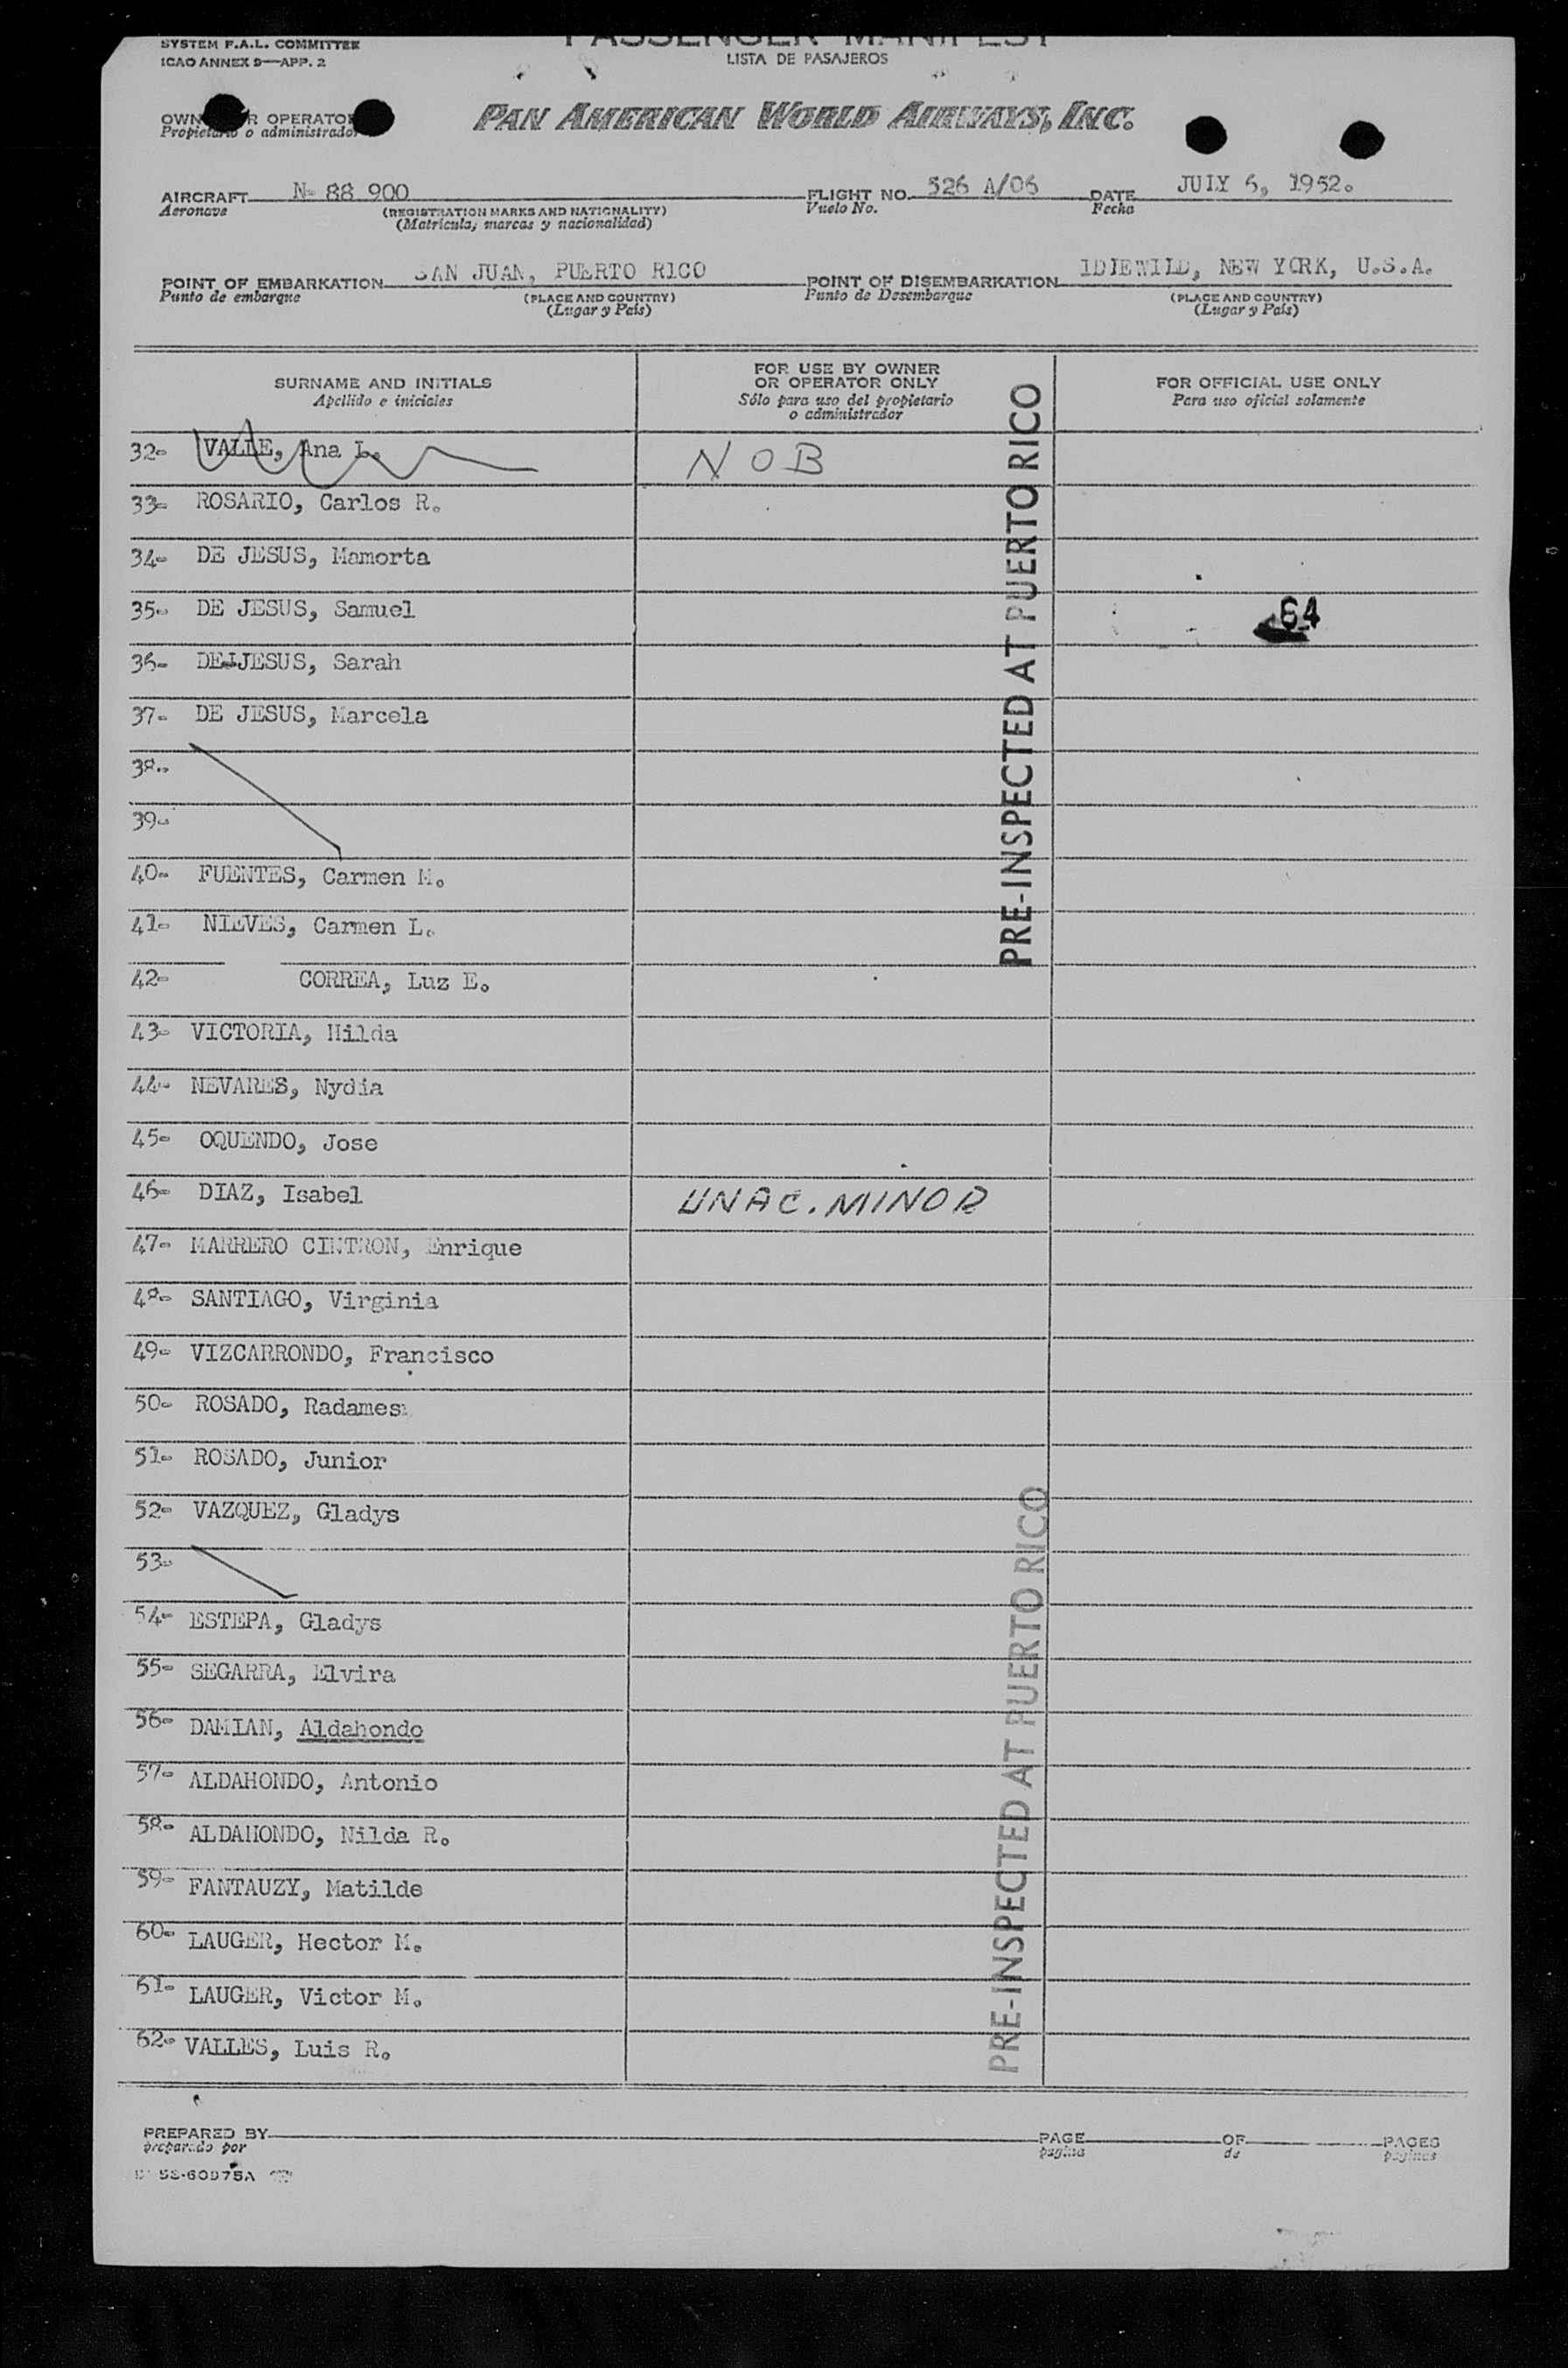 SYSTEM F.A.L. COMMITTEE
ICAO ANNEX 9—APP. 2
PASSENGER MANIFEST
LISTA DE PASAJEROS
OWNER OR OPERATOR
Propietario o administrador
PAN AMERICAN WORLD AIRWAYS, INC.
AIRCRAFT N- 88 900
Aeronave
(REGISTRATION MARKS AND NATIONALITY)
(Matrícula, marcas y nacionalidad)
FLIGHT NO. 526 A/06
Vuelo No.
DATE JULY 6, 1952.
Fecha
POINT OF EMBARKATION SAN JUAN, PUERTO RICO
Punto de embarque
(PLACE AND COUNTRY)
(Lugar y País)
POINT OF DISEMBARKATION IDIEWILD, NEW YORK, U.S.A.
Punto de Desembarque
(PLACE AND COUNTRY)
(Lugar y País)
SURNAME AND INITIALS
Apellido e iniciales
FOR USE BY OWNER
OR OPERATOR ONLY
Sólo para uso del propietario
o administrador
FOR OFFICIAL USE ONLY
Para uso oficial solamente
32- VALLE, Ana L. NOB
33- ROSARIO, Carlos R.
34- DE JESUS, Mamorta
35- DE JESUS, Samuel 64
36- DE JESUS, Sarah
37- DE JESUS, Marcela
38-
39-
40- FUENTES, Carmen M.
41- NIEVES, Carmen L.
42- CORREA, Luz E.
43- VICTORIA, Hilda
44- NEVARES, Nydia
45- OQUENDO, Jose
46- DIAZ, Isabel UNAC. MINOR
47- MARRERO CINTRON, Enrique
48- SANTIAGO, Virginia
49- VIZCARRONDO, Francisco
50- ROSADO, Radames
51- ROSADO, Junior
52- VAZQUEZ, Gladys
53-
54- ESTEPA, Gladys
55- SEGARRA, Elvira
56- DAMIAN, Aldahondo
57- ALDAHONDO, Antonio
58- ALDAHONDO, Nilda R.
59- FANTAUZY, Matilde
60- LAUGER, Hector M.
61- LAUGER, Victor M.
62- VALLES, Luis R.
PRE-INSPECTED AT PUERTO RICO
PRE-INSPECTED AT PUERTO RICO
PREPARED BY
preparado por
PAGE
pagina
OF
de
PAGES
paginas
58-60975A